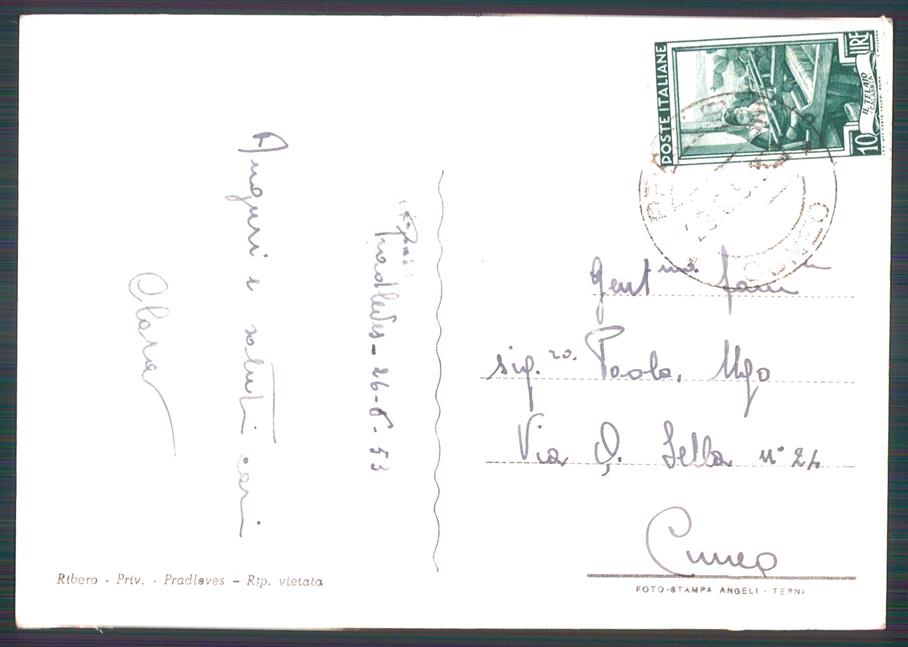 Auguri e saluti cari
Clara
Pradleves - 26-8-53
Ribero - Priv. - Pradleves - Rip. vietata
POSTE ITALIANE
10 LIRE
IL TELAIO
CALABRIA
CUNEO
Gent.ma fam
sig.ra Paola, Ugo
Via Q. Sella n° 24
Cuneo
FOTO-STAMPA ANGELI - TERNI